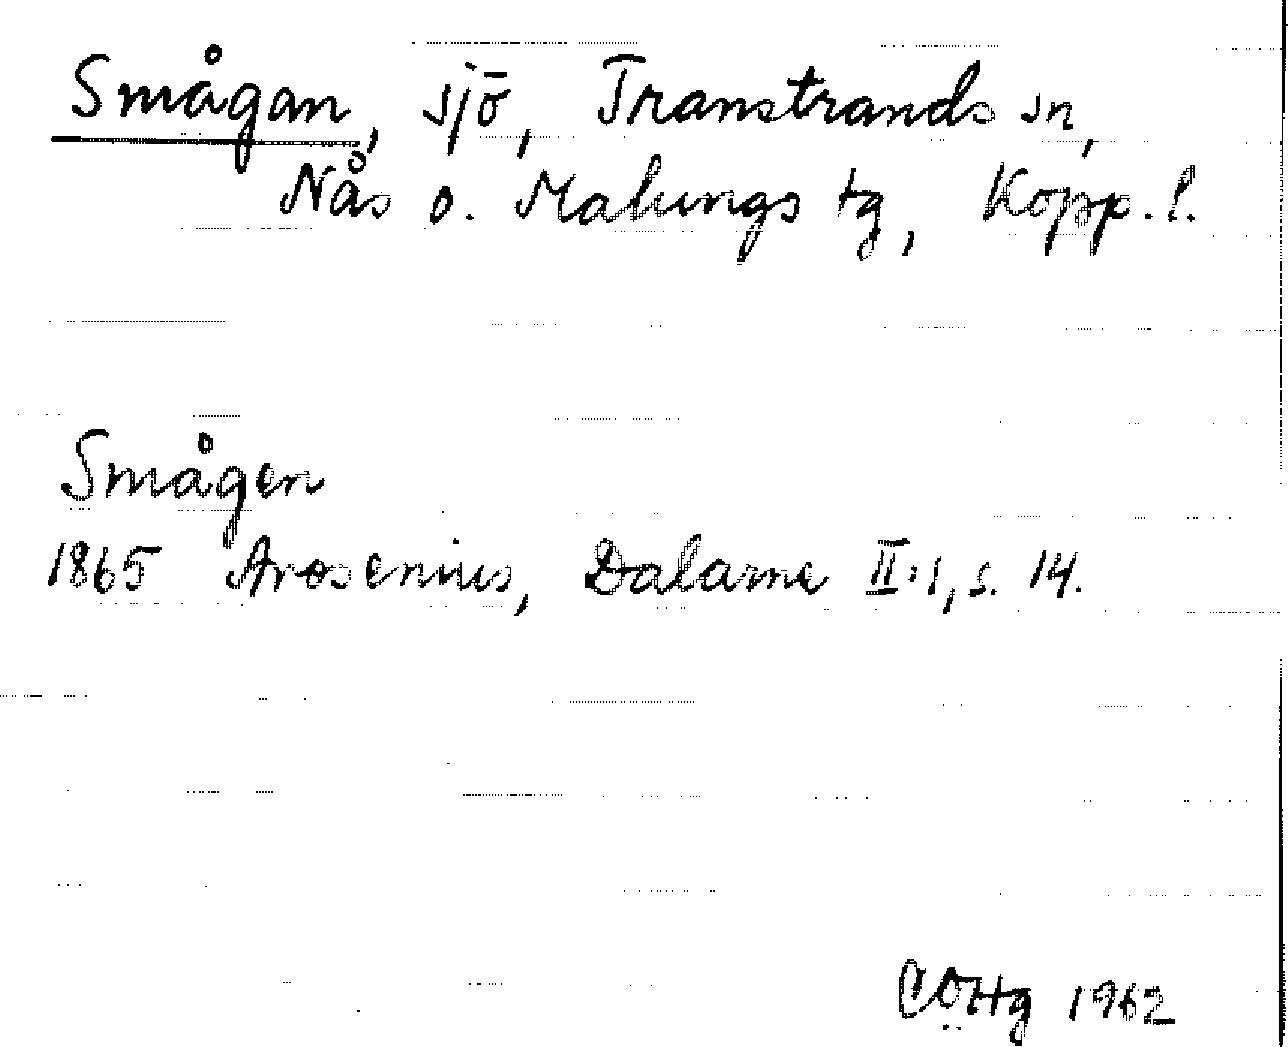 Smågan, sjö, Transtrands sn,
Nås o. Malungs tg, Kopp. l.
Smågen
1865 Arosenius, Dalarne II:1, s. 14.
1962